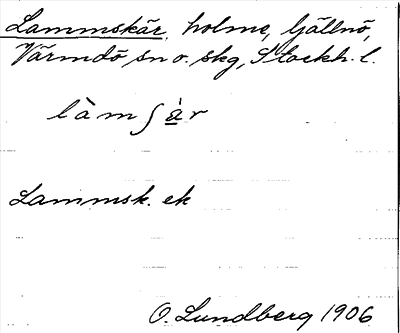 Lammskär, holme, Gällnö,
Värmdö sn o. skg, Stockh. l.
làmʃa̲̍r
Lammsk. ek
O. Lundberg 1906